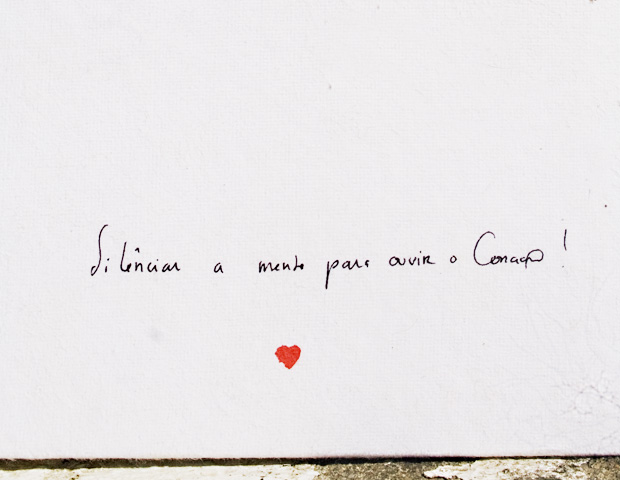 Silênciar a mente para ouvir o Coração!